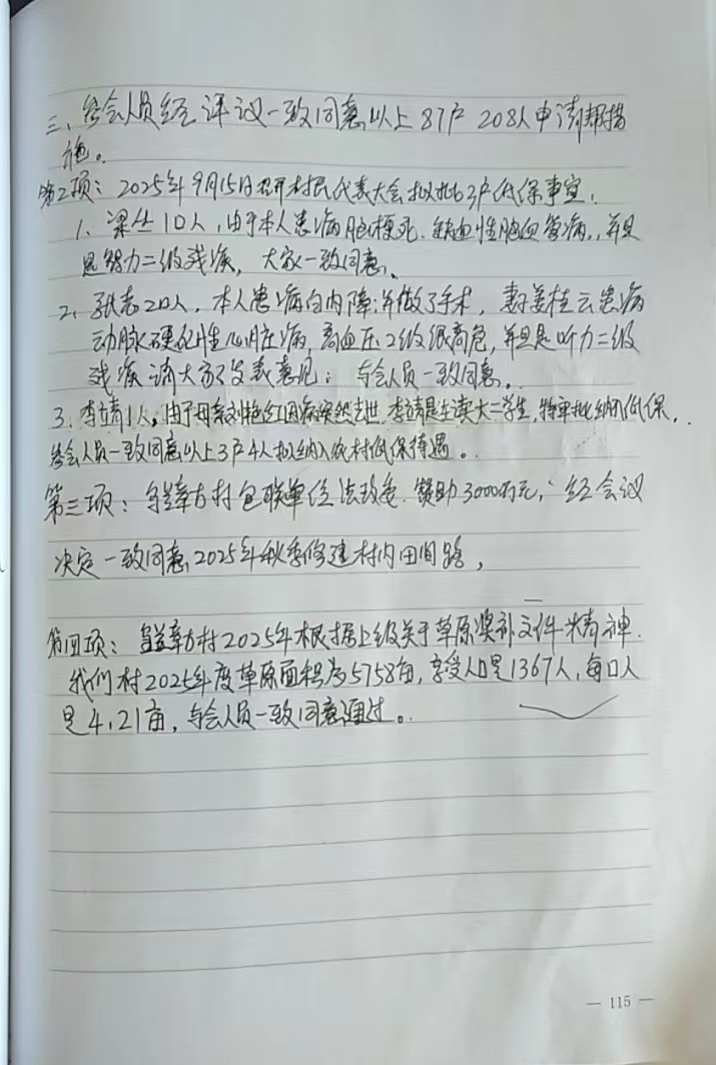 三、与会人员经评议一致同意以上87户 208人申请帮措
施。
第2项：2025年9月15日召开村民代表大会拟批3户低保事宜.
1、梁 10人，由于本人患病脑梗死.缺血性脑血管病，并且
是智力二级残疾，大家一致同意、
2、张志20人，本人患病白内障；并做了手术，妻子姜桂云患病
动脉硬化性心脏病，高血压2级很高危，并且是听力二级
残疾请大家发表意见；与会人员一致同意。
3.李靖1人，由于母亲刘艳红因病突然去世.李靖是在读大二学生，特审批纳入低保，
与会人员一致同意以上3户4人拟纳入农村低保待遇。
第三项： 村包联单位法政委.赞助3000万元，经会议
决定一致同意2025年秋季修建村内田间路，
第四项： 村2025年根据上级关于草原奖补文件精神.
我们村2025年度草原面积为5758亩，享受人口是1367人，每口人
是4.21亩，与会人员一致同意通过。
— 115 —